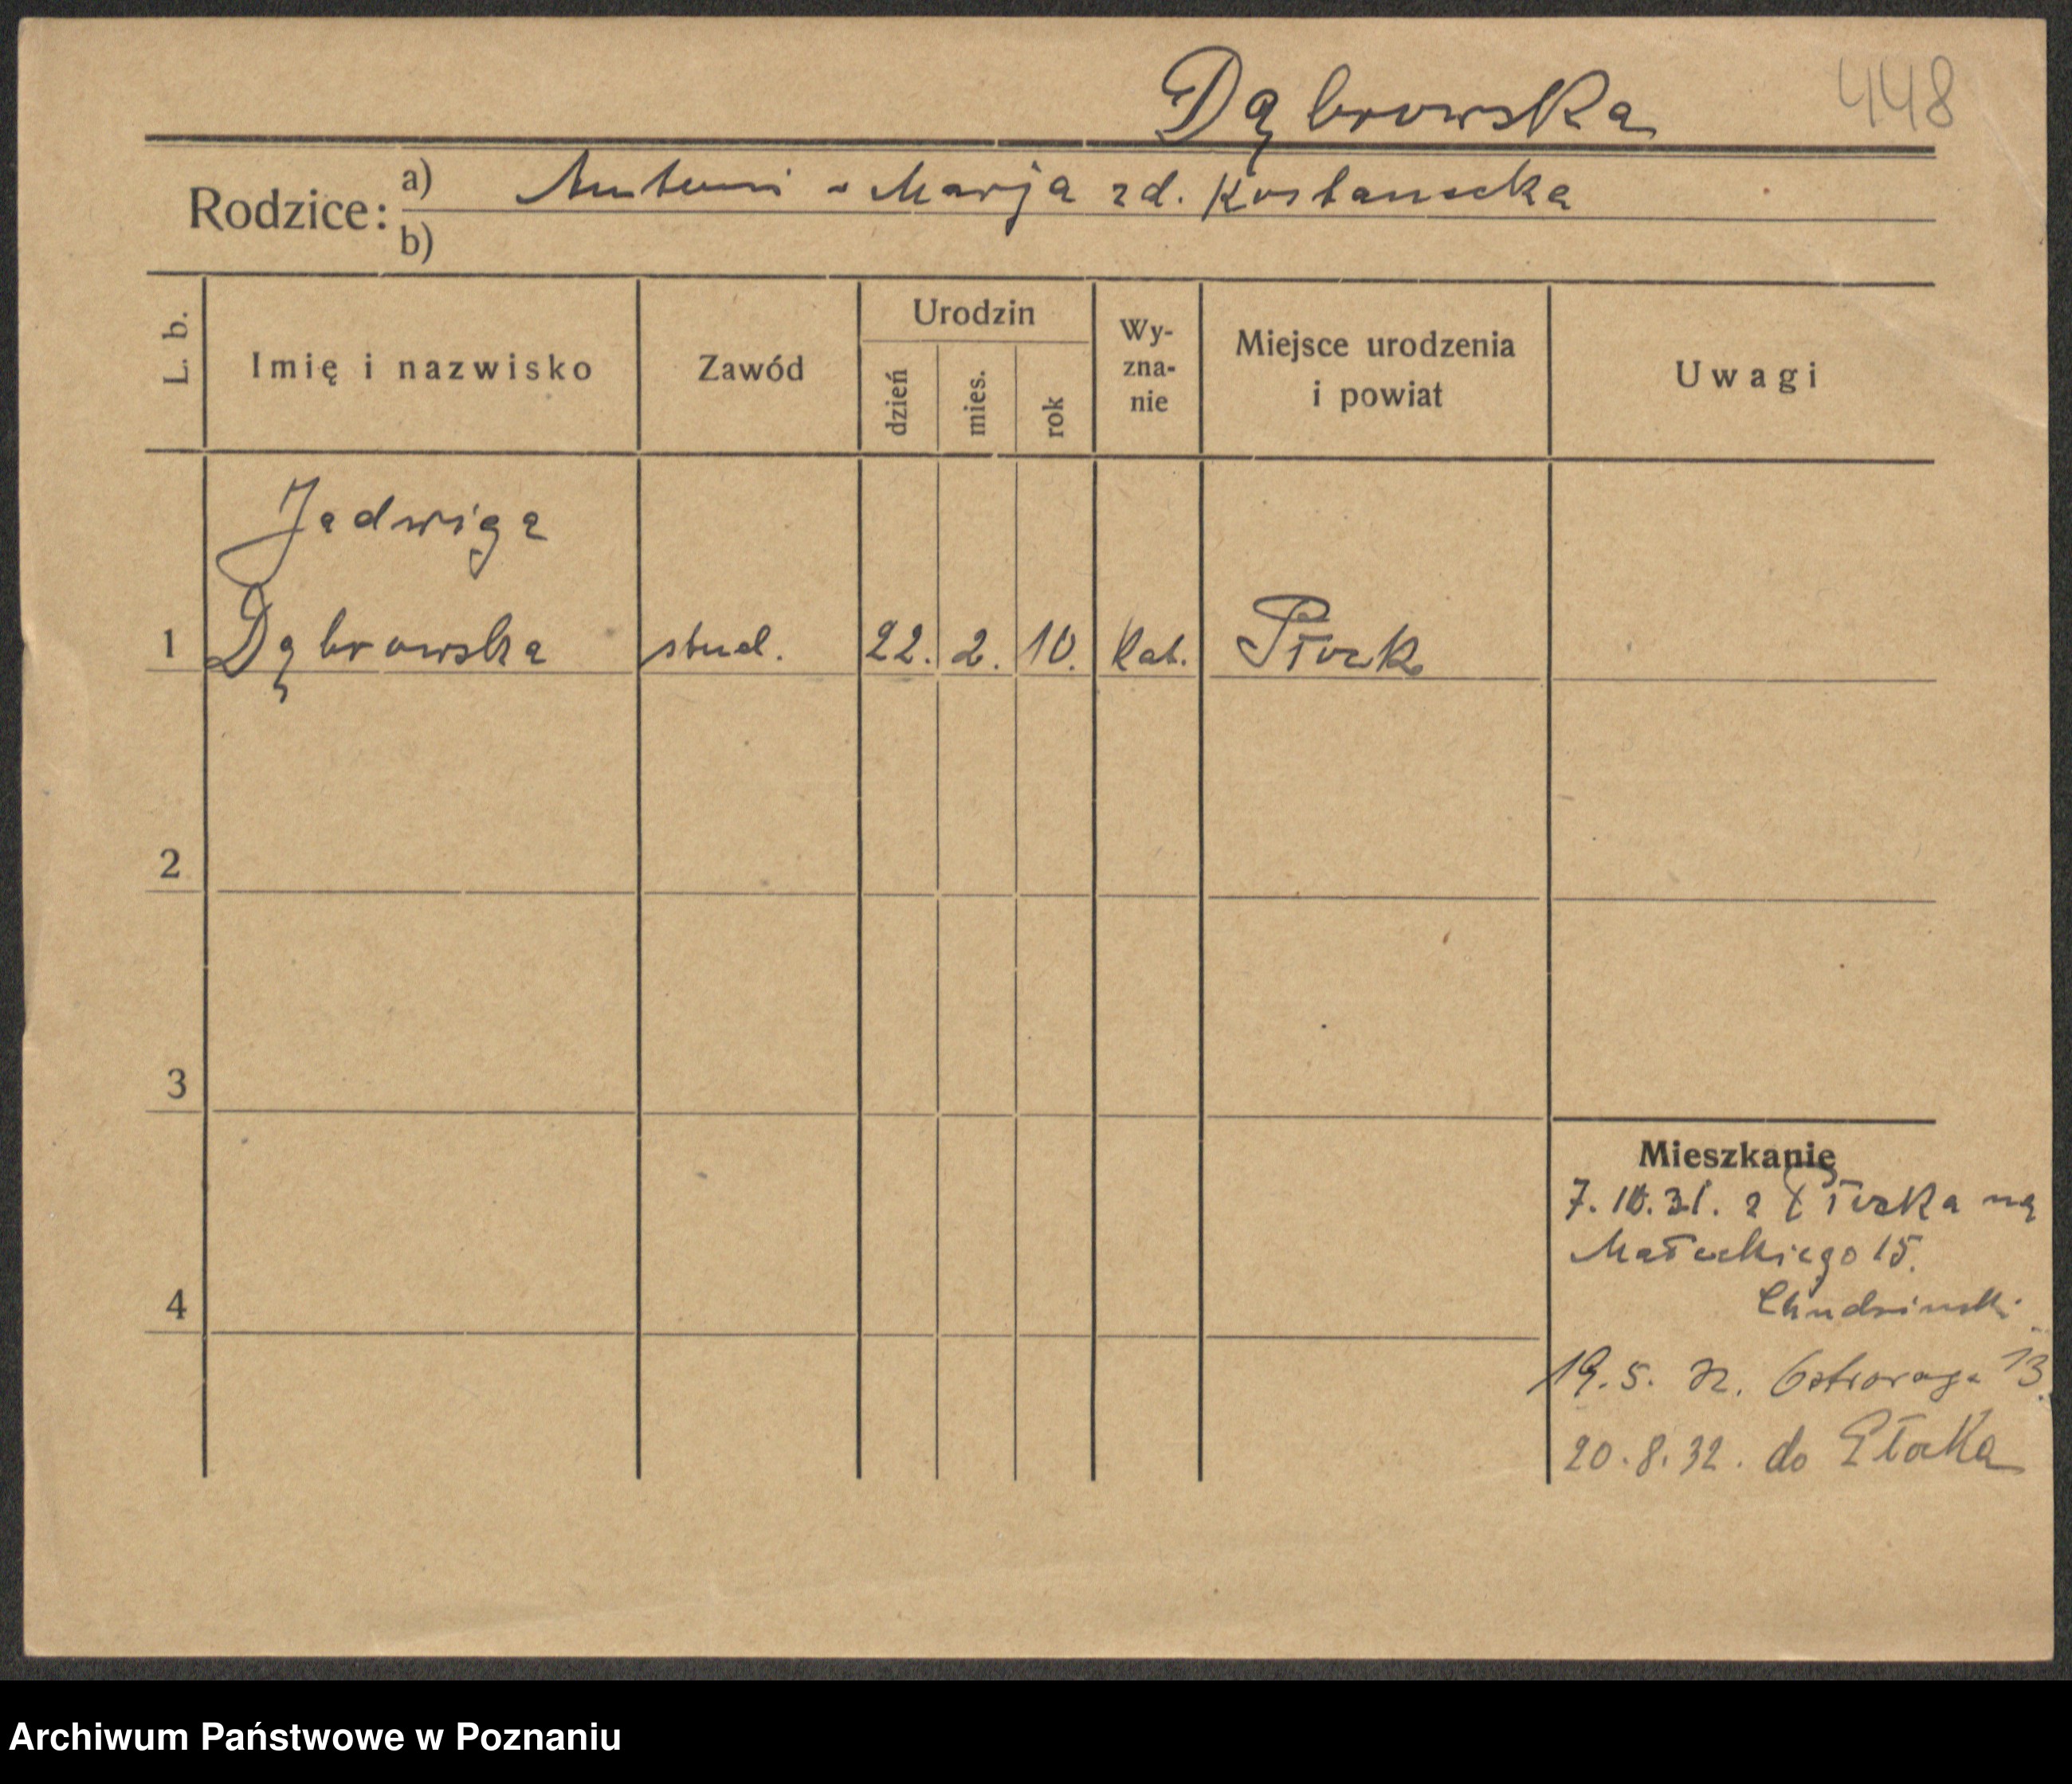 Dąbrowska 448
Rodzice: a) Antoni - Marja zd. Kostanecka
b)
L. b. Imię i nazwisko Zawód Urodzin dzień mies. rok Wy-zna-nie Miejsce urodzenia i powiat Uwagi
Jadwiga
1 Dąbrowska stud. 22. 2. 10. Kat. Płock
2
3
Mieszkanie
7. 10. 31. z Płocka na
Małeckiego 15.
4 Chudziński
19. 5. 32. Ostroroga 13.
20. 8. 32. do Płocka
Archiwum Państwowe w Poznaniu